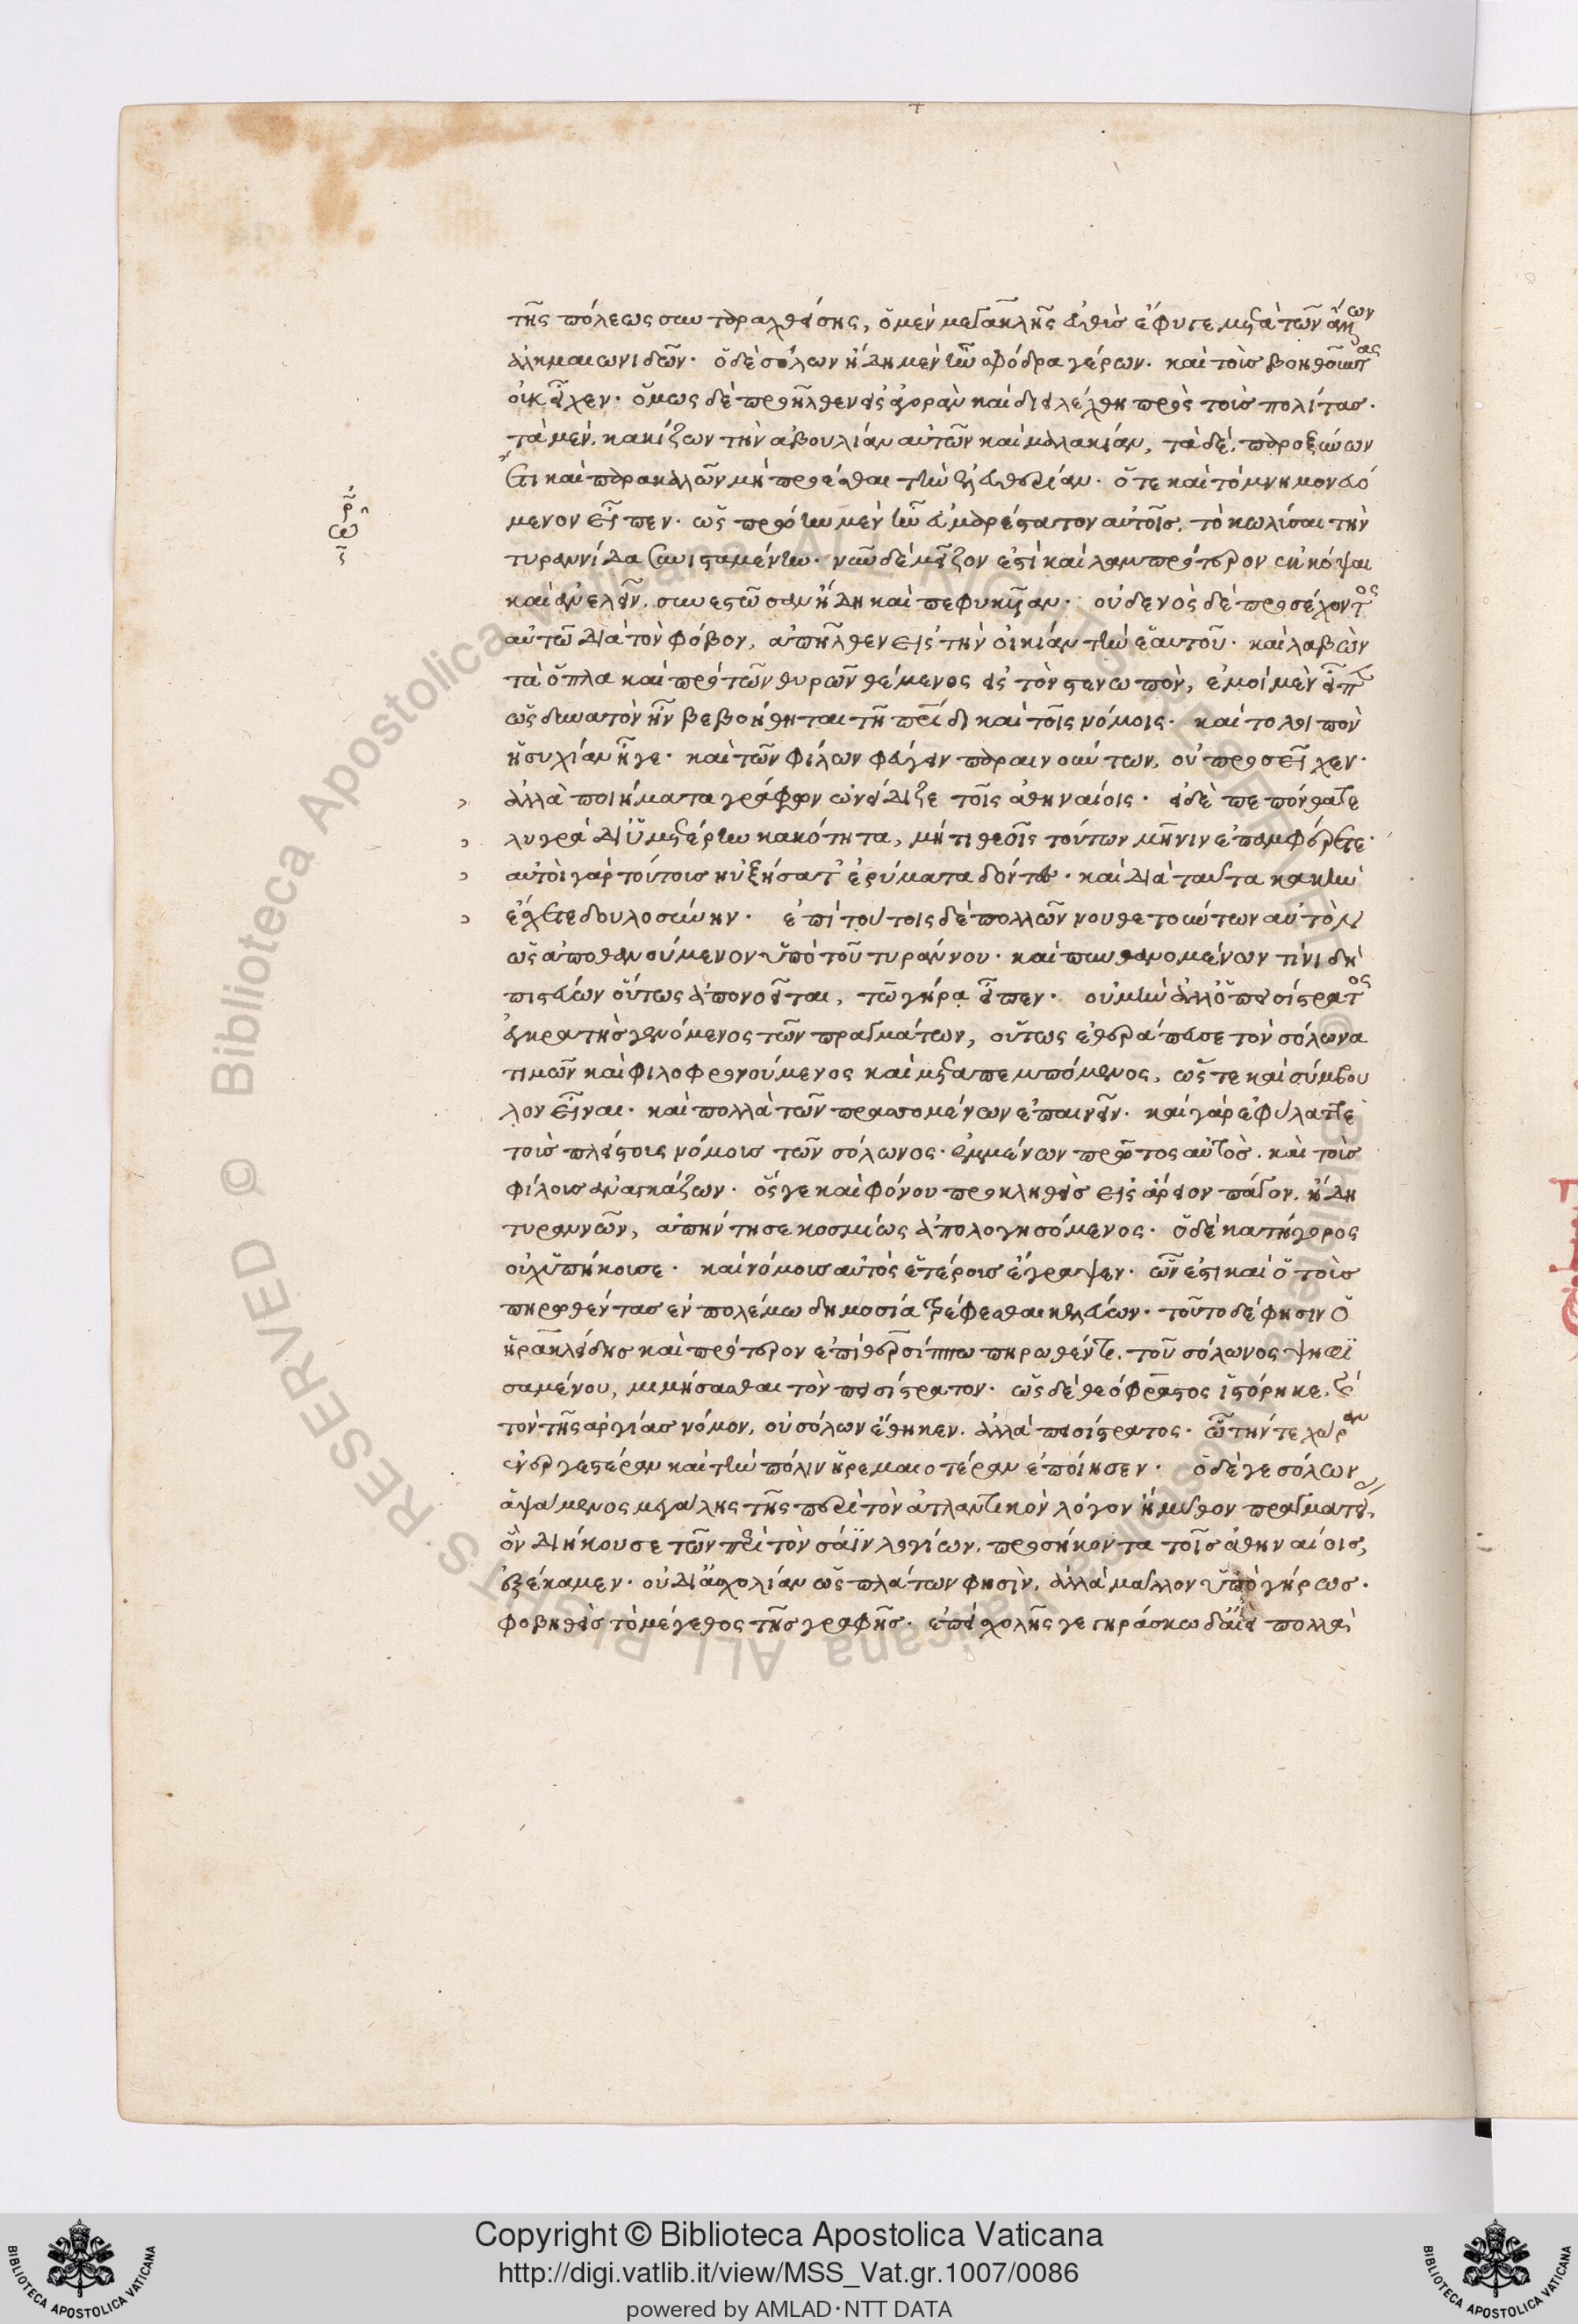 τῆς πόλεως συνταραχθείσης, ὁ μὲν μεγακλῆς εὐθὺς ἔφυγε μετὰ τῶν ἄλλων
ἀλκμαιωνιδῶν· ὁ δὲ σόλων ἤδη μὲν ἦν σφόδρα γέρων· καὶ τοὺς βοηθοῦντας
οὐκ εἶχεν· ὅμως δὲ προῆλθεν εἰς ἀγορὰν καὶ διελέχθη πρὸς τοὺς πολίτας·
τὰ μὲν, κακίζων τὴν ἀβουλίαν αὐτῶν καὶ μαλακίαν, τὰ δὲ, παροξύνων
ἔτι καὶ παρακαλῶν μὴ προέσθαι τὴν ἐλευθερίαν· ὅτε καὶ τὸ μνημονευό
μενον εἶπεν· ὡς πρότερον μὲν ἦν εὐμαρέστατον αὐτοῖς, τὸ κωλύσαι τὴν
τυραννίδα συνισταμένην· νῦν δὲ μεῖζον ἐστὶ καὶ λαμπρότερον ἐκκόψαι
καὶ ἀνελεῖν, συνεστῶσαν ἤδη καὶ πεφυκυῖαν· οὐδενὸς δὲ προσέχοντος
αὐτῶ διὰ τὸν φόβον, ἀπῆλθεν εἰς τὴν οἰκίαν τὴν ἑαυτοῦ· καὶ λαβὼν
τὰ ὅπλα καὶ πρὸ τῶν θυρῶν θέμενος εἰς τὸν στενωπὸν, ἐμοὶ μὲν εἶπεν
ὡς δυνατὸν ἦν βεβοήθηται τῆ πατρίδι καὶ τοῖς νόμοις· καὶ τολοιπὸν
ἡσυχίαν ἦγε· καὶ τῶν φίλων φεύγειν παραινούντων, οὐ προσεῖχεν·
ἀλλὰ ποιήματα γράφων ὠνείδιζε τοῖς ἀθηναίοις· εἰ δὲ πεπόνθατε
λυγρὰ δι ὑμετέρην κακότητα, μή τι θεοῖς τούτων μῆνιν ἐπαμφέρετε·
αὐτοὶ γὰρ τούτους ηὐξήσατ' ἐρύματα δόντες· καὶ διὰ ταῦτα κακὴν
ἔσχετε δουλοσύνην· ἐπὶ τούτοις δὲ πολλῶν νουθετούντων αὐτὸν
ὡς ἀποθανούμενον ὑπὸ τοῦ τυράννου· καὶ πυνθανομένων τίνι δὴ
πιστεύων οὕτως ἀπονοεῖται, τῶ γήρα εἶπεν· οὐ μὴν ἀλλ' ὁ πεισίστρατος
ἐγκρατὴς γενόμενος τῶν πραγμάτων, οὕτως ἐθεράπευσε τὸν σόλωνα
τιμῶν καὶ φιλοφρονούμενος καὶ μεταπεμπόμενος, ὥστε καὶ σύμβου
λον εἶναι· καὶ πολλὰ τῶν πρασσομένων ἐπαινεῖν· καὶ γὰρ ἐφύλαττε
τοὺς πλείστους νόμους τῶν σόλωνος· ἐμμένων πρῶτος αὐτὸς, καὶ τοὺς
φίλους ἀναγκάζων· ὅς γε καὶ φόνου προκληθεὶς εἰς ἄρειον πάγον, ἤδη
τυραννῶν, ἀπήντησε κοσμίως ἀπολογησόμενος· ὁ δὲ κατήγορος
οὐχ ὑπήκουσε· καὶ νόμους αὐτὸς ἑτέρους ἔγραψεν· ὧν ἐστὶ καὶ ὁ τοὺς
πηρωθέντας ἐν πολέμω δημοσία τρέφεσθαι κελεύων· τοῦτο δέ φησιν ὁ
ἡρακλείδης καὶ πρότερον ἐπὶ θερσίππω πηρωθέντι, τοῦ σόλωνος ψηφι
σαμένου, μιμήσασθαι τὸν πεισίστρατον· ὡς δὲ θεόφραστος ἱστόρηκε, καὶ
τὸν τῆς ἀργίας νόμον, οὐ σόλων ἔθηκεν, ἀλλὰ πεισίστρατος· ὧ τήν τε χώραν
ἐνεργεστέραν καὶ τὴν πόλιν ἠρεμαιοτέραν ἐποίησεν· ὁ δέ γε σόλων
ἁψάμενος μεγάλης τῆς περὶ τὸν ἀτλαντικὸν λόγον ἢ μῦθον πραγματείας,
ὃν διήκουσε τῶν περὶ τὸν σάϊν λογίων, προσήκοντα τοῖς ἀθηναίοις,
ἐξέκαμεν· οὐ δι' ἀσχολίαν ὡς πλάτων φησὶν, ἀλλὰ μᾶλλον ὑπὸ γήρως·
φοβηθεὶς τὸ μέγεθος τῆς γραφῆς· ἐπεὶ σχολῆς γε γηράσκω δ' ἀεὶ πολλὰ